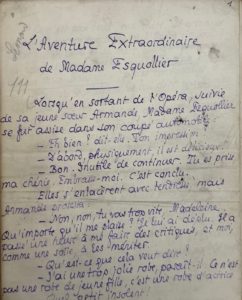 1
L'Aventure Extraordinaire
de Madame Esquollier
Lorsqu'en sortant de l'Opéra, suivie
de sa jeune sœur Armande, Madame Esquollier
se fut assise dans son coupé automobile
— Eh bien ! dit-elle. Ton impression
— D'abord, physiquement, il est
— Bon. Inutile de continuer. Tu es prise
ma chérie. Embrasse-moi. C'est conclu.
Elles s'entendirent avec tendresse, mais
Armande protesta
— Non, non, tu vas trop vite, Madeleine.
Qu'importe qu'il me plaise ? Je lui ai déplu. Il a
passé une heure à me faire des critiques, et moi,
comme une sotte à les mériter.
— Qu'est-ce que cela veut dire ?
— J'ai une trop jolie robe, paraît-il. Ce n'est
pas une robe de jeune fille, c'est une robe d'actrice
petit insolent.